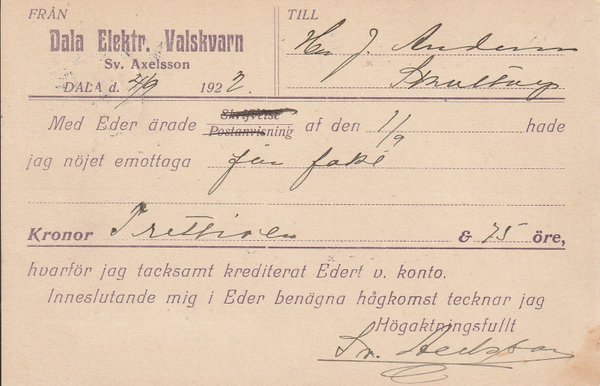 FRÅN
Dala Elektr. Valskvarn
Sv. Axelsson
DALA d. 2/9 1922
TILL
Herr J. Andersson
Med Eder ärade Skrifvelse Postanvisning af den 1/9 hade
jag nöjet emottaga för
Kronor & 75 öre,
hvarför jag tacksamt krediterat Edert v. konto.
Inneslutande mig i Eder benägna hågkomst tecknar jag
Högaktningsfullt
Sv. Axelsson